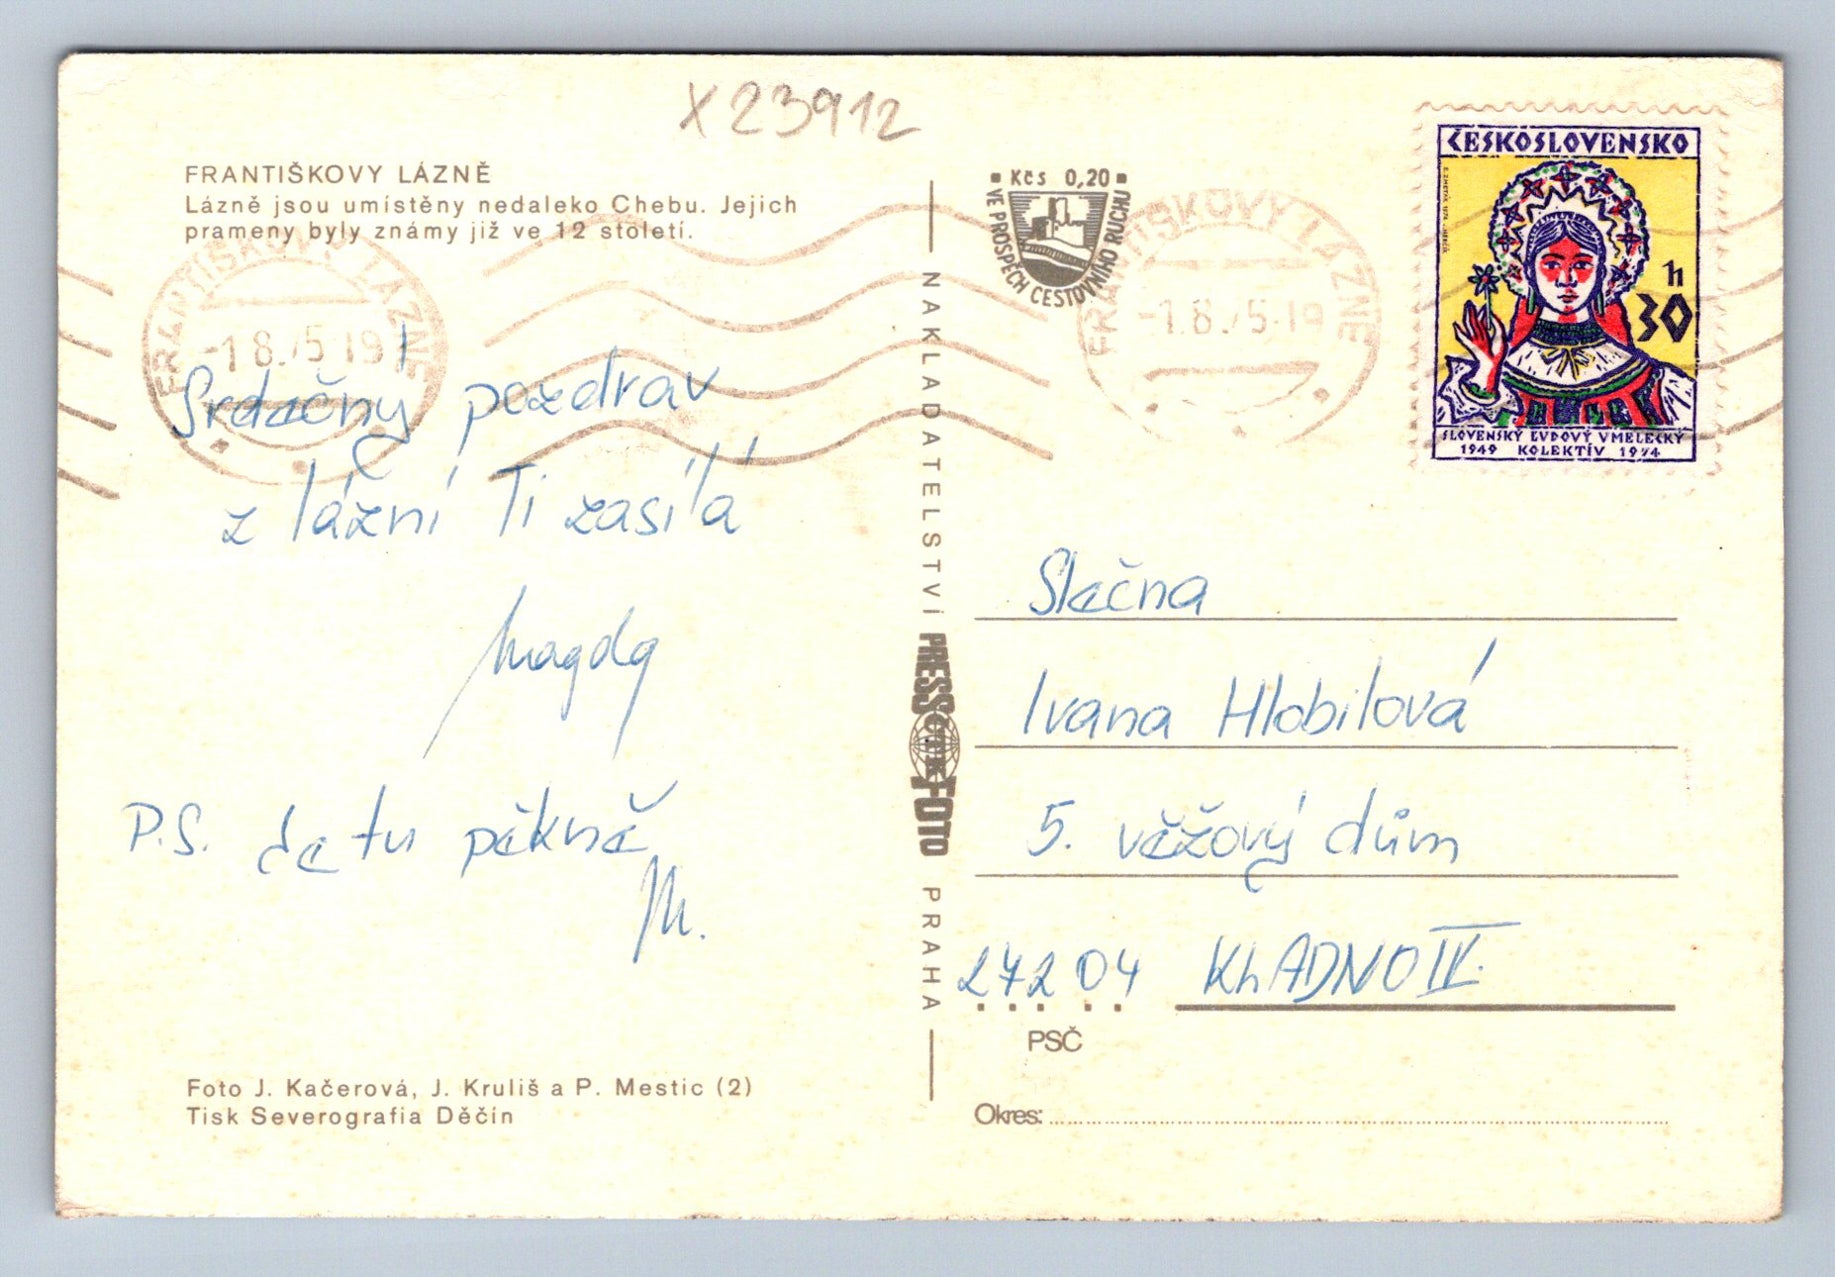 X 23912
FRANTIŠKOVY LÁZNĚ
Lázně jsou umístěny nedaleko Chebu. Jejich
prameny byly známy již ve 12 století.
FRANTIŠKOVY LÁZNĚ
-1.8.75-19
Srdečný pozdrav
z lázní Ti zasílá
Magda
P.S. Je tu pěkně
M.
Foto J. Kačerová, J. Kruliš a P. Mestic (2)
Tisk Severografia Děčín
NAKLADATELSTVÍ
PRESSFOTO
PRAHA
Kčs 0,20
VE PROSPĚCH CESTOVNÍHO RUCHU
FRANTIŠKOVY LÁZNĚ
-1.8.75-19
ČESKOSLOVENSKO
h
30
SLOVENSKÝ ĽUDOVÝ UMELECKÝ
1949 KOLEKTÍV 1974
Slečna
Ivana Hlobilová
5. věžový dům
272 04 KLADNO IV.
PSČ
Okres: